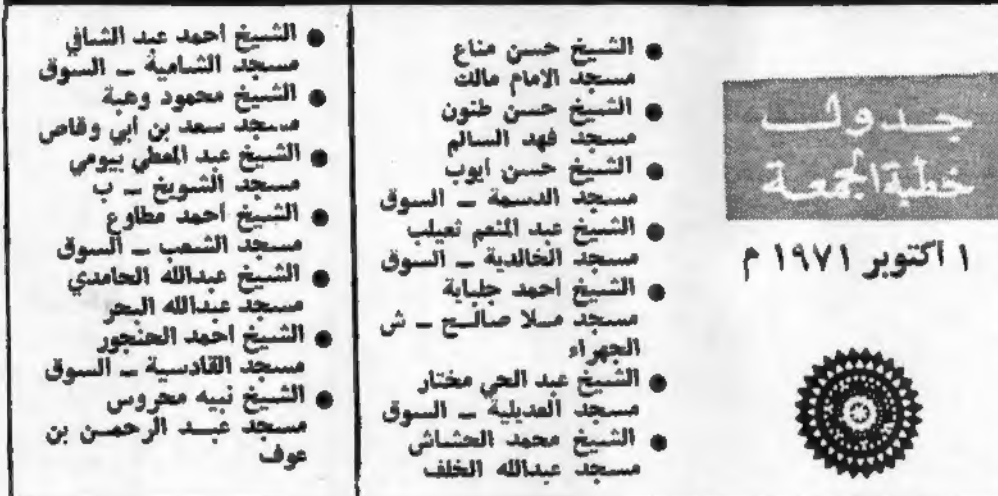 جدول
خطبة الجمعة
١ اكتوبر ١٩٧١ م
● الشيخ حسن مناع
مسجد الامام مالك
● الشيخ حسن طنون
مسجد فهد السالم
● الشيخ حسن ايوب
مسجد الدسمة ــ السوق
● الشيخ عبد المنعم تعيلب
مسجد الخالدية ــ السوق
● الشيخ احمد جلباية
مسجد مـلا صالـح ــ ش
الجهراء
● الشيخ عبد الحي مختار
مسجد العديلية ــ السوق
● الشيخ محمد الحشاش
مسجد عبدالله الخلف
● الشيخ احمد عبد الشافي
مسجد الشامية ــ السوق
● الشيخ محمود وهبة
مسجد سعد بن أبي وقاص
● الشيخ عبد المعطي بيومي
مسجد الشويخ ــ ب
● الشيخ احمد مطاوع
مسجد الشعب ــ السوق
● الشيخ عبدالله الحامدي
مسجد عبدالله البحر
● الشيخ احمد الحنجور
مسجد القادسية ــ السوق
● الشيخ نبيه محروس
مسجد عبـد الرحمـن بن
عوف